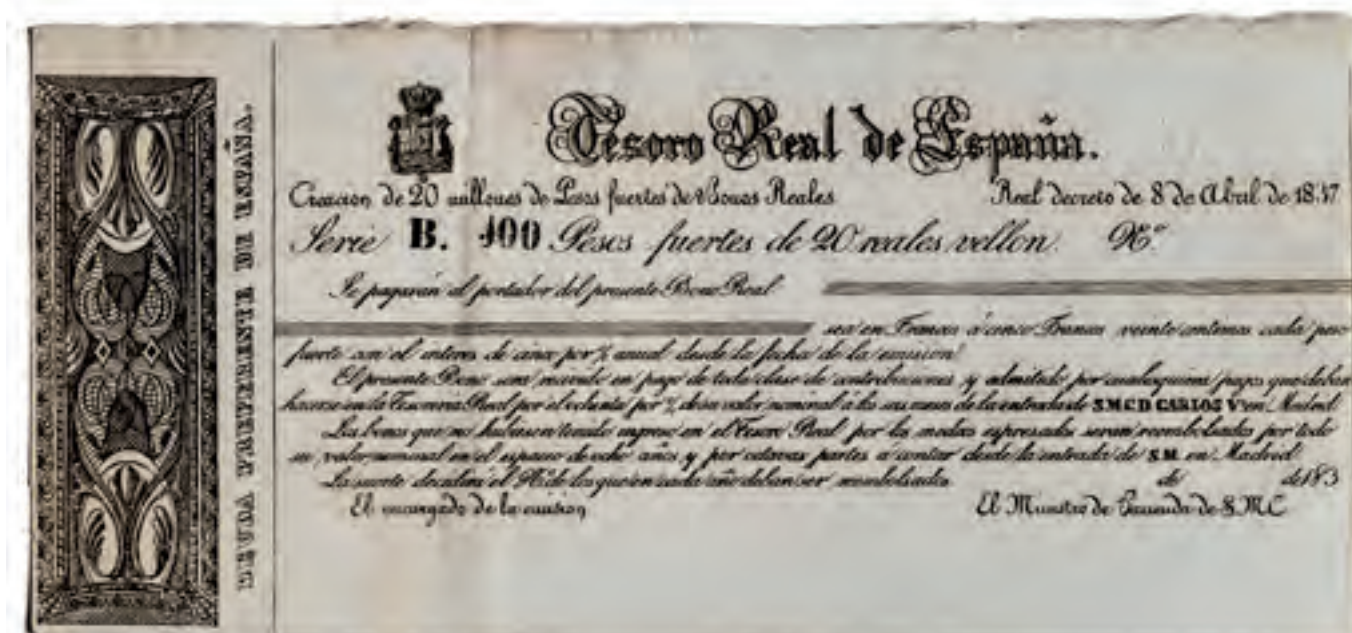 DEUDA PREFERENTE DE ESPAÑA.
Tesoro Real de España.
Creacion de 20 millones de Pesos fuertes de Bonos Reales
Real decreto de 8 de Abril de 1837
Serie B. 100 Pesos fuertes de 20 reales vellon. Nº
Se pagarán al portador del presente Bono Real
sea en Francia á cinco Francos veinte centimos cada peso
fuerte con el interes de cinco por % anual desde la fecha de la emision
El presente Bono sera recivido en pago de toda clase de contribuciones y admitido por cualesquiera pagos que deban
hacerse en la Tesoreria Real por el ochenta por % de su valor nominal á los seis meses de la entrada de S.M.C.D. CARLOS V en Madrid
Los bonos que no hubiesen tenido ingreso en el Tesoro Real por los modos espresados seran reembolsados por todo
su valor nominal en el espacio de ocho años y por octavas partes a contar desde la entrada de S.M. en Madrid
La suerte decidira el Nº de los que en cada año deban ser reembolsados.
de de 183
El encargado de la emision
El Ministro de Hacienda de S.M.C